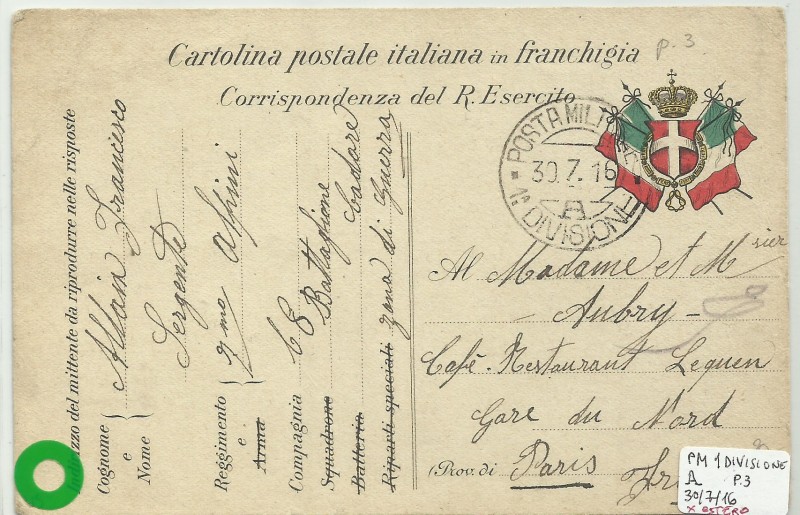 Cartolina postale italiana in franchigia
p. 3
Corrispondenza del R. Esercito
POSTA MILITARE
30.7.16
A
1ª DIVISIONE
Al Madame et Msier
Aubry
Café-Restaurant Lequen
Gare du Nord
(Prov. di Paris
Indirizzo del mittente da riprodurre nelle risposte
Cognome e Nome { Francesco
Sergente
Reggimento e Arma { 7mo Alpini
Compagnia 68
Squadrone Battaglione
Batteria Cadore
Riparti speciali zona di Guerra
PM 1 DIVISIONE
A P.3
30/7/16
x ESTERO